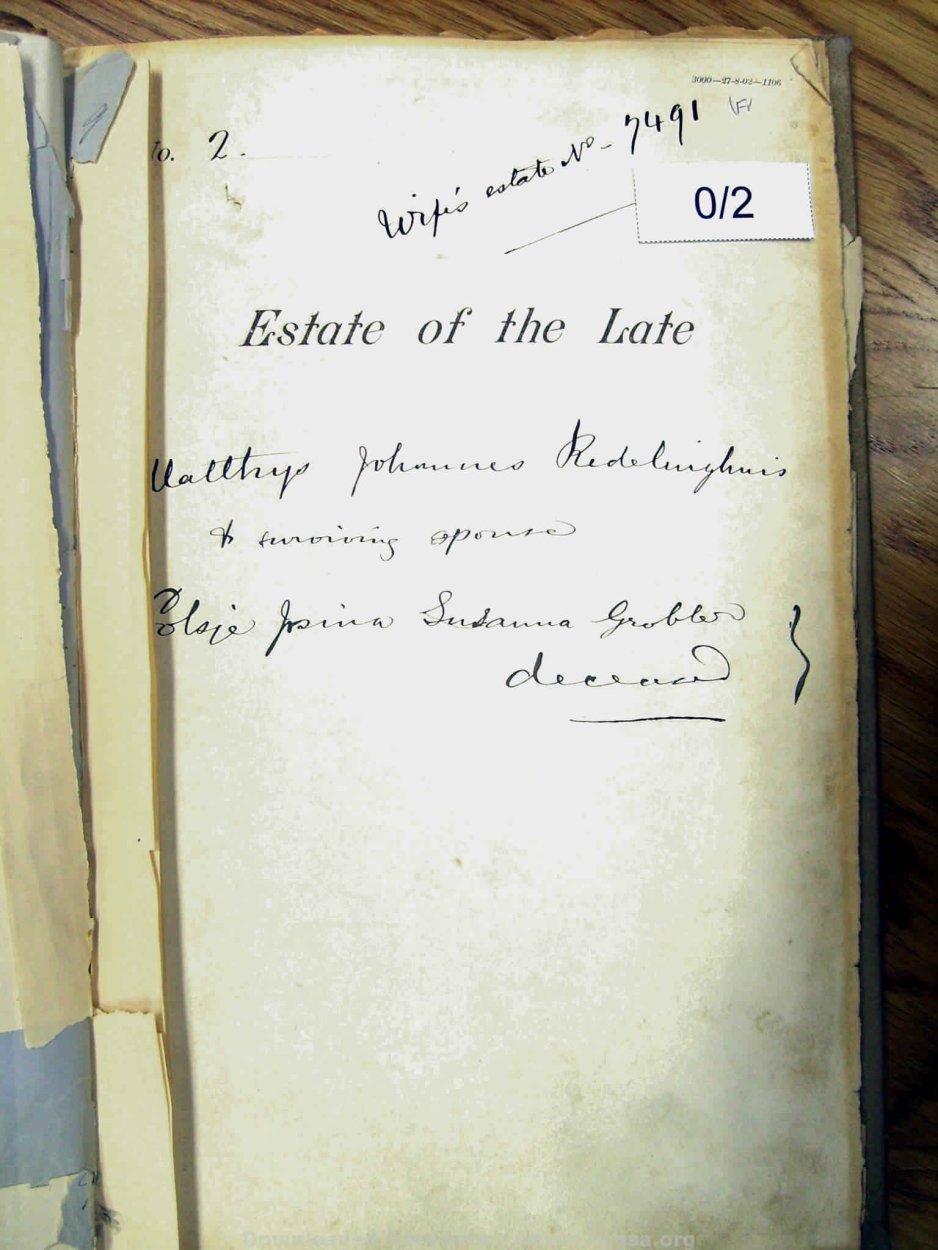 3000—27-8-02—1106
o. 2.
Wife's estate No - 7491
0/2
Estate of the Late
Matthys Johannes Redelinghuis
& surviving spouse
Elsje Josina Susanna Grobler
deceased